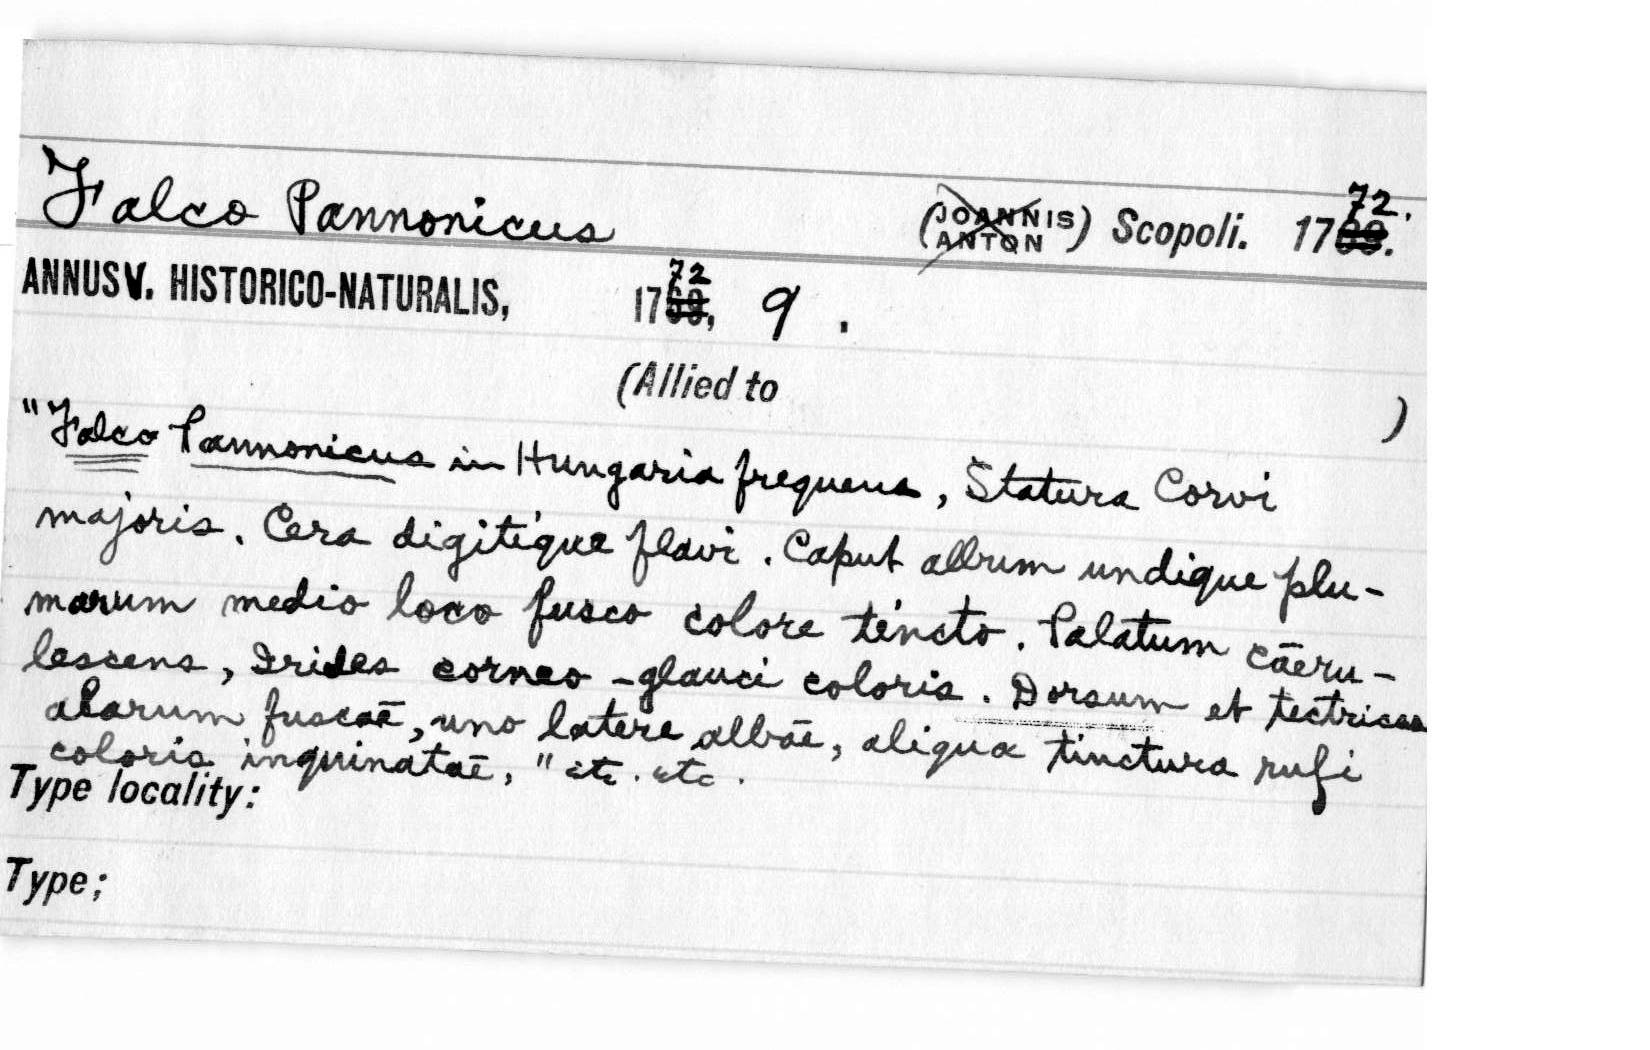 Falco Pannonicus (JOANNIS ANTON) Scopoli. 1769. 72.
ANNUS V. HISTORICO-NATURALIS, 1769, 72 9 .
(Allied to )
"Falco Pannonicus in Hungaria frequens, Statura Corvi
majoris. Cera digitique flavi. Caput album undique plu-
marum medio loco fusco colore tincto. Palatum cāeru-
lescens, Irides corneo-glauci coloris. Dorsum et tectrices
alarum fuscaē, uno latere albāe, aliqua tinctura rufi
coloris inquinataē," etc. etc.
Type locality:
Type;